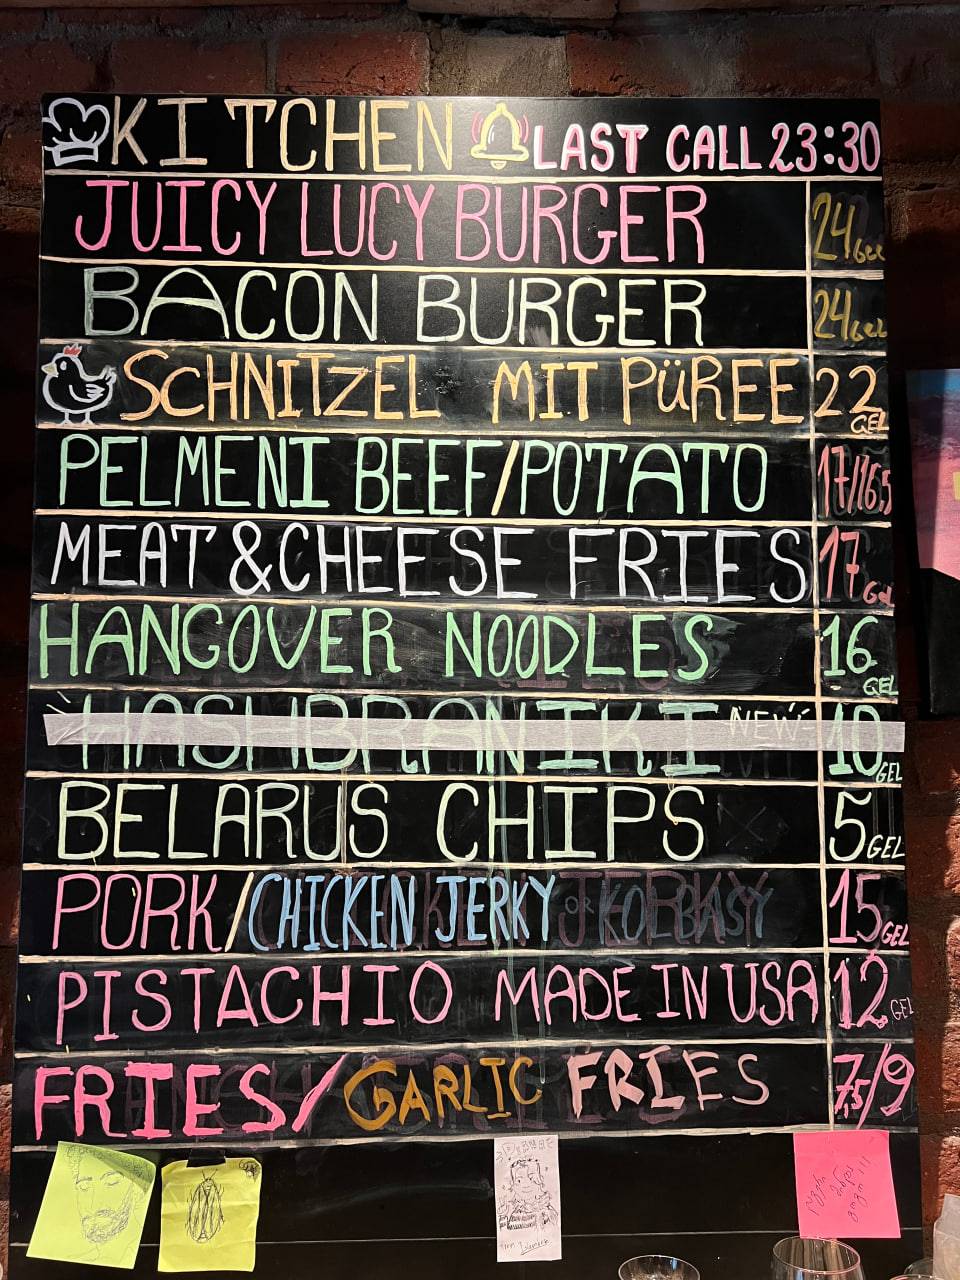 KITCHEN LAST CALL 23:30
JUICY LUCY BURGER 24 GEL
BACON BURGER 24 GEL
SCHNITZEL MIT PÜREE 22 GEL
PELMENI BEEF/POTATO 17/16,5
MEAT & CHEESE FRIES 17 GEL
HANGOVER NOODLES 16 GEL
HASHBRANIKI NEW 10 GEL
BELARUS CHIPS 5 GEL
PORK/CHICKEN JERKY OR KOLBASY 15 GEL
PISTACHIO MADE IN USA 12 GEL
FRIES/GARLIC FRIES 7,5/9